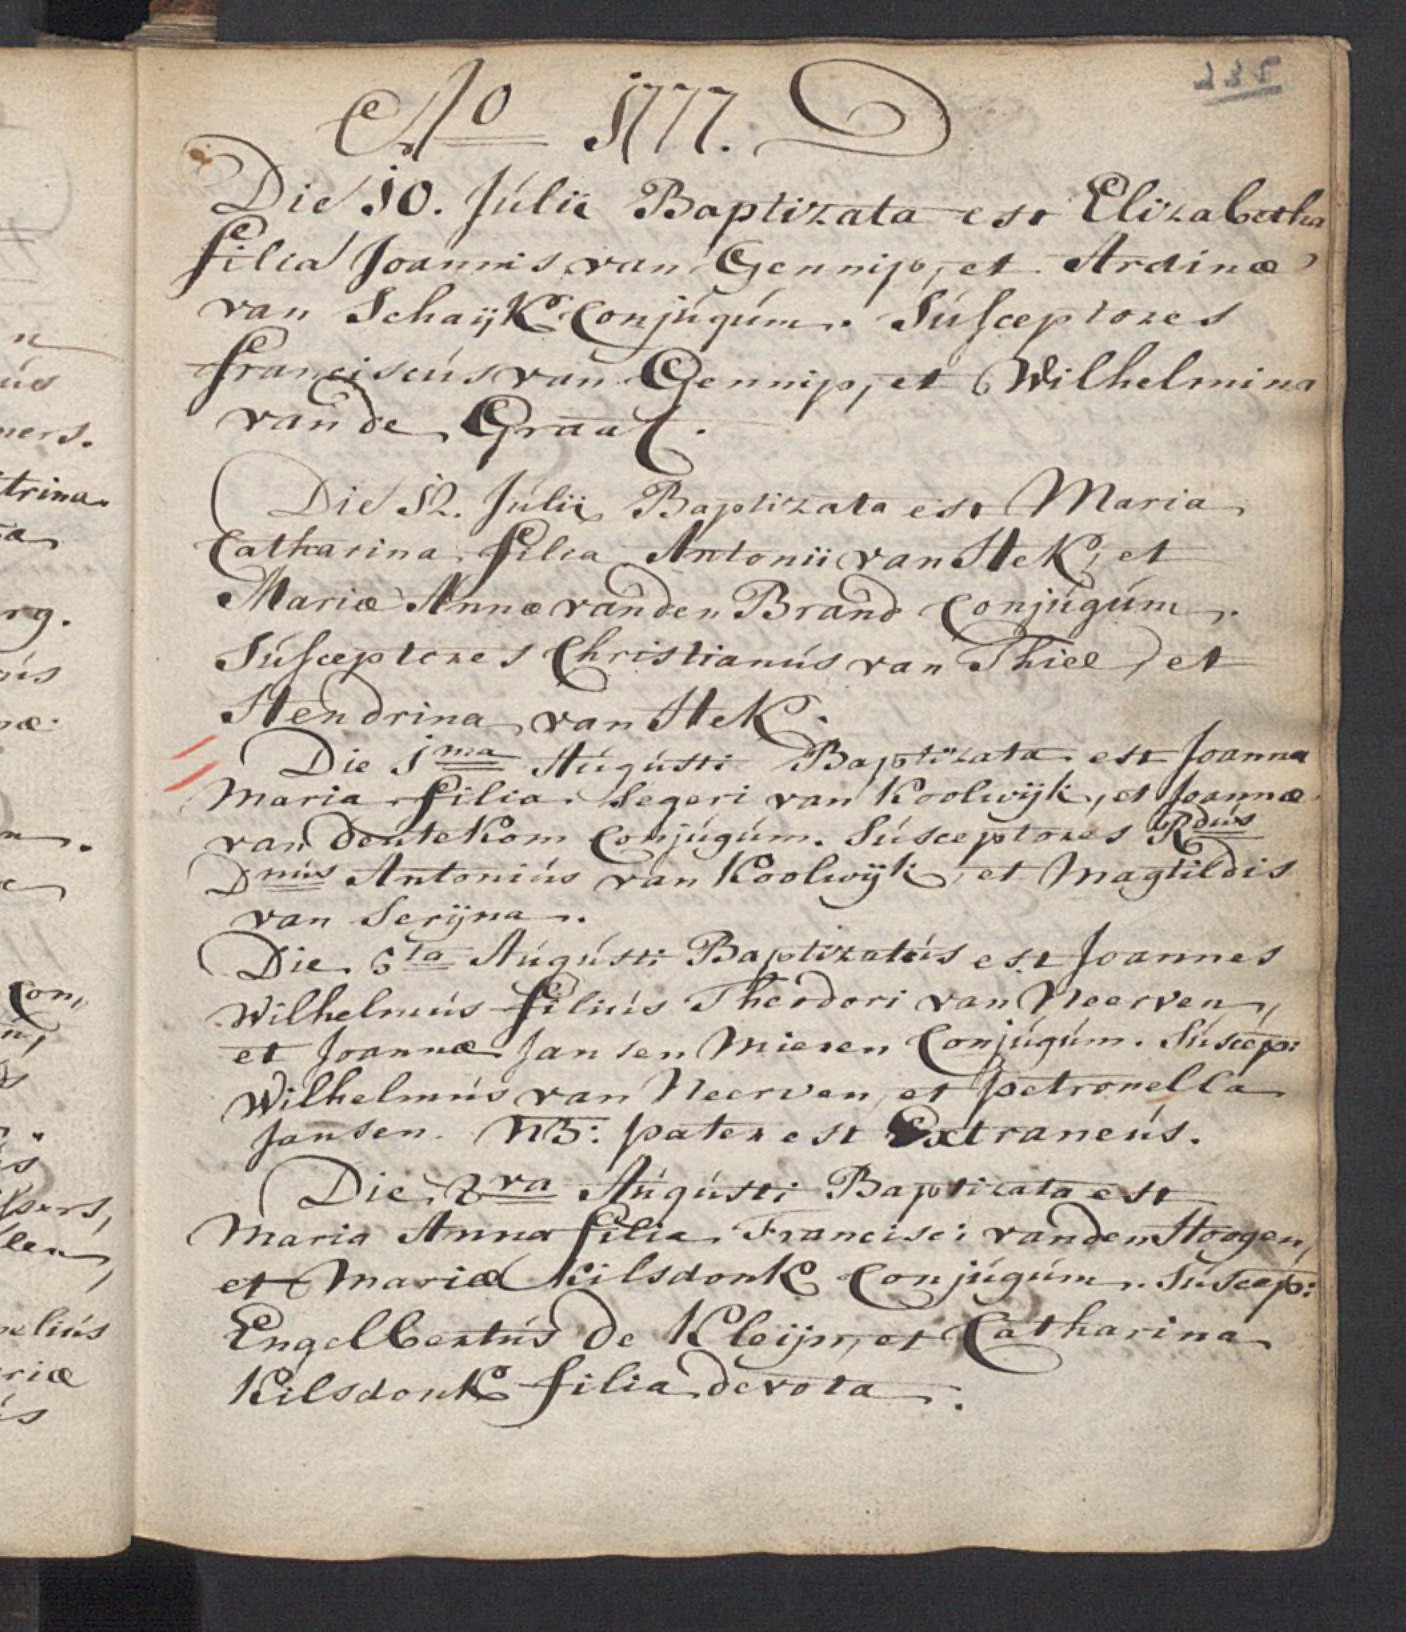 Ao 1777.
Die 10. Júlii Baptizata est Elizabetha
filia Joannis van Gennip, et Ardinæ
van Schaijk Conjúgúm. Súsceptores
franciscús van Gennip, et Wilhelmina
van de Graaf.
Die 12. Júlii Baptizata est Maria
Catharina filia Antonii van Hek, et
Mariæ Annæ vanden Brand Conjúgúm.
Súsceptores Christianús van Thiel, et
Hendrina van Hek.
Die 1ma Aúgústi Baptizata est Joanna
Maria filia Segeri van Koolwijk, et Joannæ
van deutekom Conjúgúm. Súsceptores Rdús
Dnús Antoniús van Koolwijk, et Magtildis
van Serijna.
Die 6ta Aúgústi Baptizatús est Joannes
Wilhelmús filiús Theodori van Neerven,
et Joannæ Jansen Mieren Conjúgúm. Súscep:
Wilhelmús van Neerven, et petronella
Jansen. NB: pater est Extraneús.
Die 8va Aúgústi Baptizata est
Maria Anna filia Francisci vanden Hoogen,
et Mariæ Kilsdonk Conjúgúm. Súscep:
Engelbertús de Kleijn, et Catharina
Kilsdonk filia devota.